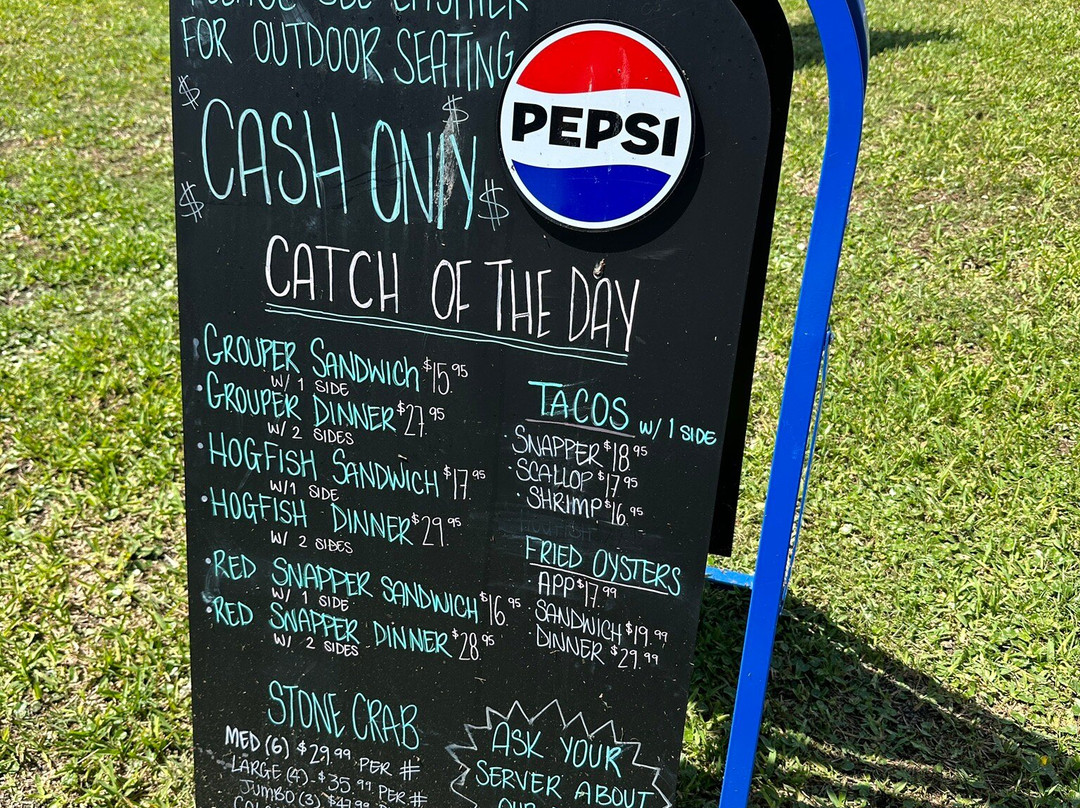 FOR OUTDOOR SEATING
PEPSI
$ CASH ONLY $
$ $
CATCH OF THE DAY
GROUPER SANDWICH $15.95
W/ 1 SIDE
• GROUPER DINNER $27.95
W/ 2 SIDES
• HOGFISH SANDWICH $17.95
W/1 SIDE
• HOGFISH DINNER $29.95
W/ 2 SIDES
• RED SNAPPER SANDWICH $16.95
W/ 1 SIDE
• RED SNAPPER DINNER $28.95
W/ 2 SIDES
TACOS W/ 1 SIDE
• SNAPPER $18.95
• SCALLOP $17.95
• SHRIMP $16.95
FRIED OYSTERS
• APP $17.99
• SANDWICH $19.99
• DINNER $29.99
STONE CRAB
MED (6) $29.99 PER #
LARGE (4) $35.99 PER #
JUMBO (3) PER #
ASK YOUR
SERVER ABOUT